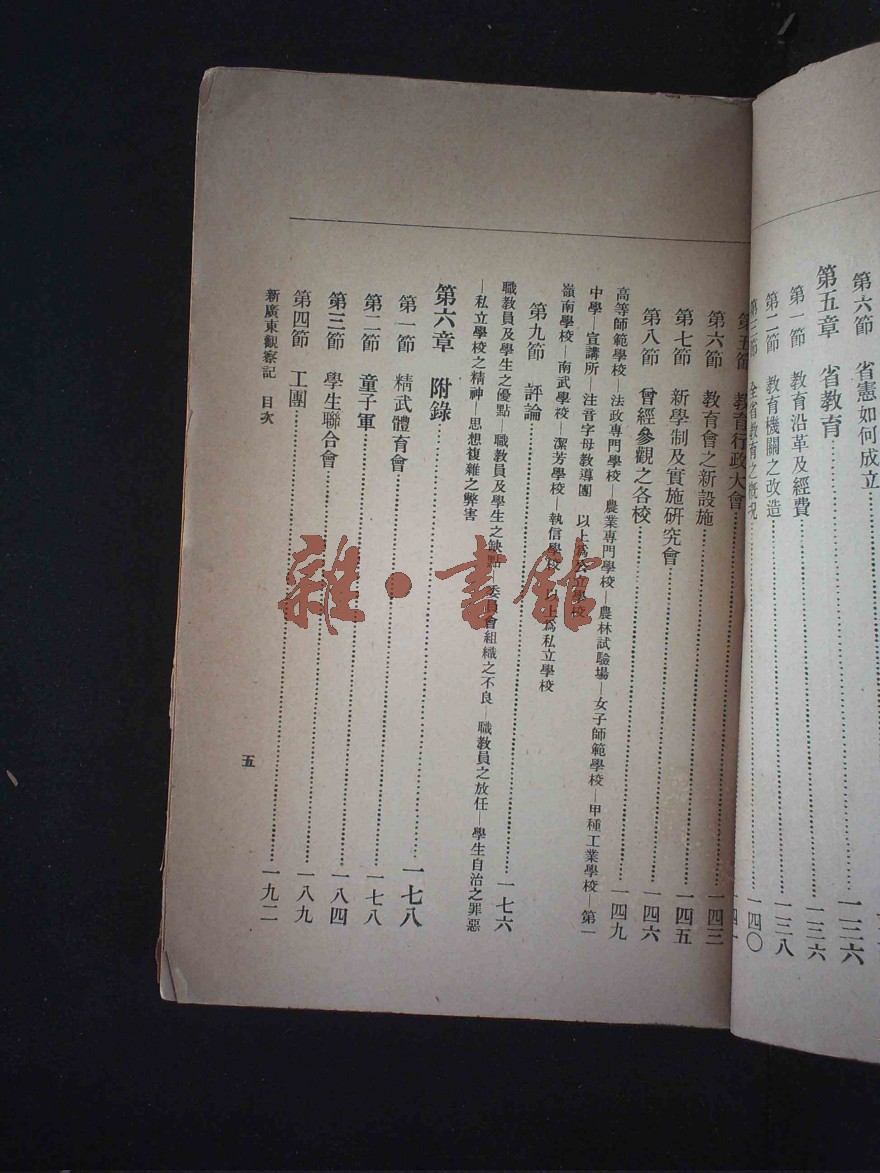 第六節 省憲如何成立
第五章 省教育……一三六
第一節 教育沿革及經費……一三六
第二節 教育機關之改造……一三八
第三節 全省教育之概況……一四〇
第五節 教育行政大會……一四三
第六節 教育會之新設施……一四五
第七節 新學制及實施研究會……一四六
第八節 曾經參觀之各校……一四九
高等師範學校—法政專門學校—農業專門學校—農林試驗場—女子師範學校—甲種工業學校—第一
中學—宣講所—注音字母教導團 以上爲公立學校
嶺南學校—南武學校—潔芳學校—執信學校 以上爲私立學校
第九節 評論……一七六
職教員及學生之優點—職教員及學生之缺點—委員會組織之不良—職教員之放任—學生自治之罪惡
—私立學校之精神—思想複雜之弊害
第六章 附錄……一七八
第一節 精武體育會……一七八
第二節 童子軍……一八四
第三節 學生聯合會……一八九
第四節 工團……一九二
新廣東觀察記 目次
五
雜·書館